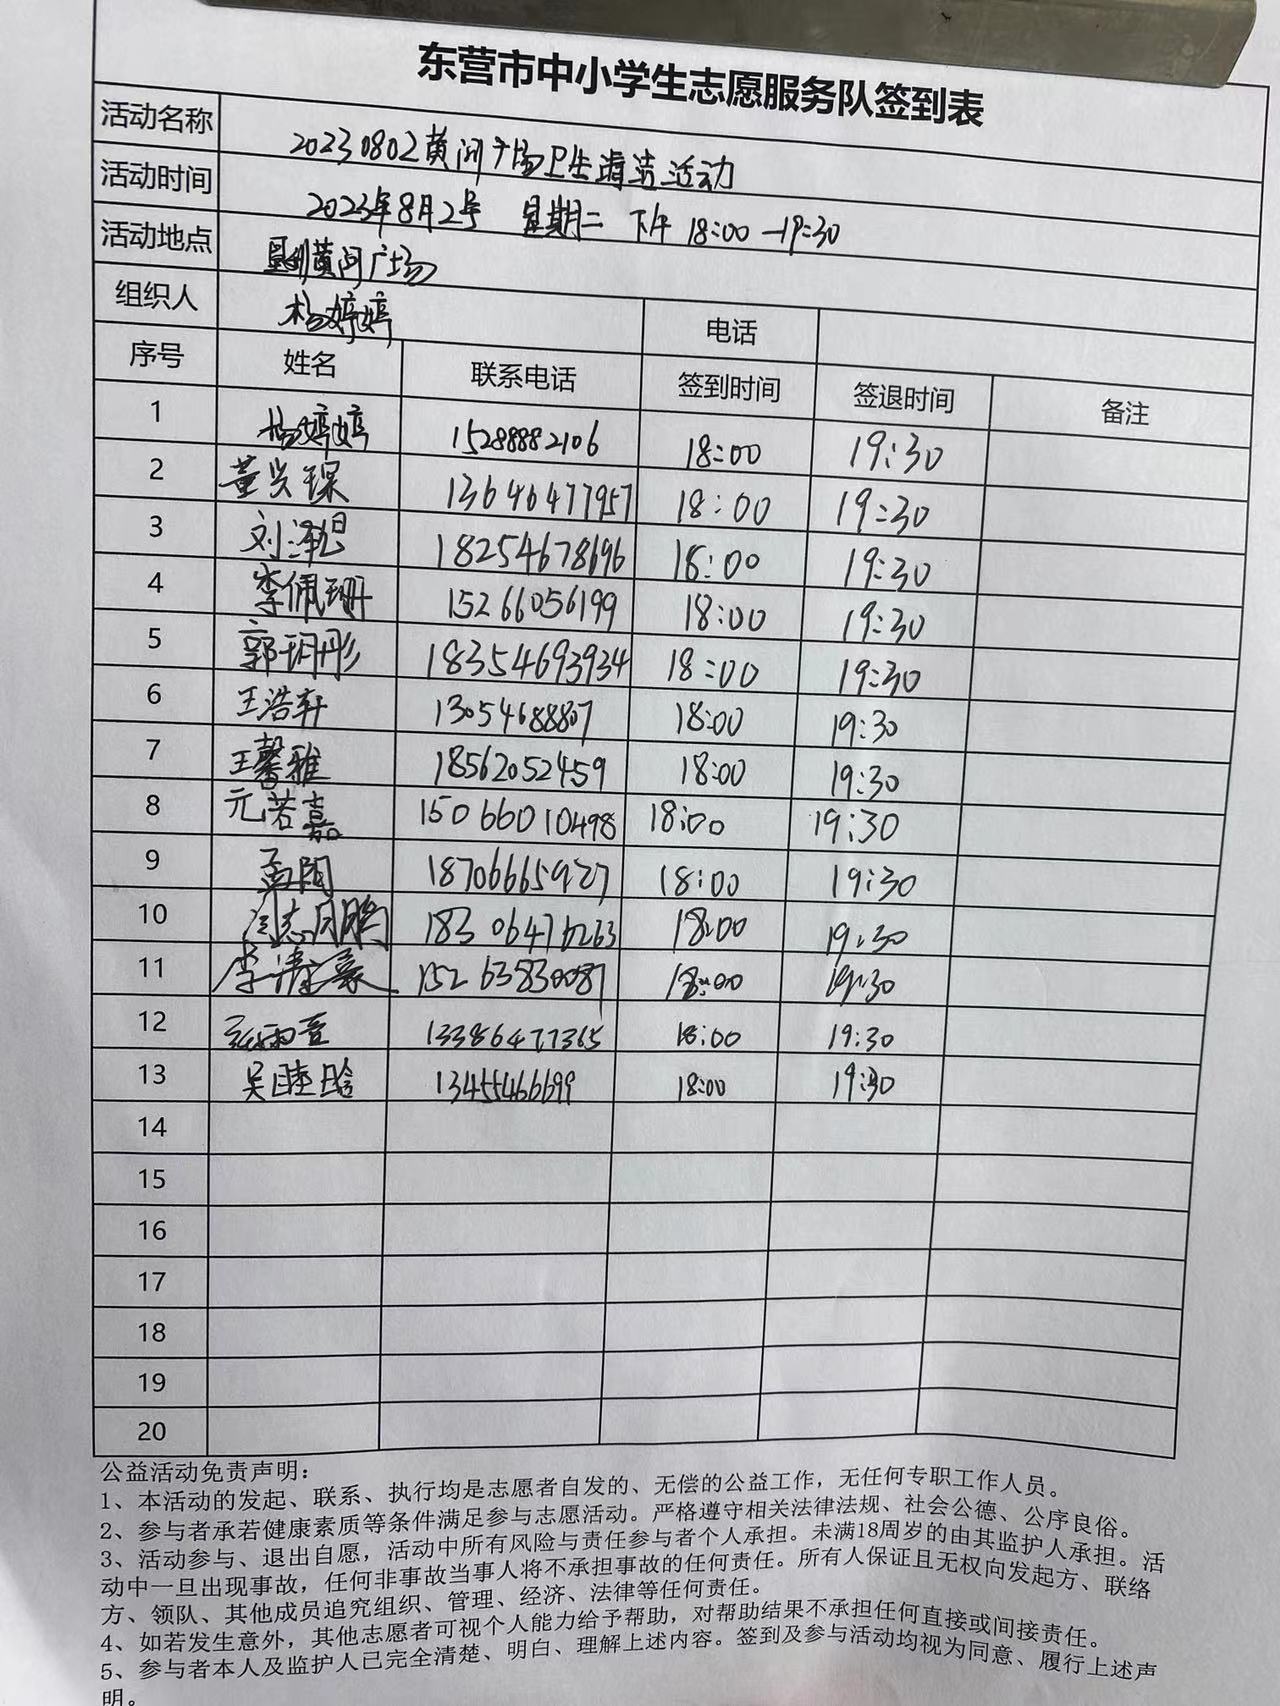 东营市中小学生志愿服务队签到表
活动名称 20230802黄河广场卫生清洁活动
活动时间 2023年8月2号 星期二 下午 18:00—19:30
活动地点 垦利黄河广场
组织人 杨婷婷 电话
序号 姓名 联系电话 签到时间 签退时间 备注
1 杨婷婷 15288882106 18:00 19:30
2 董兴琛 13646477957 18:00 19:30
3 刘泽 18254678696 18:00 19:30
4 李佩珊 15266056199 18:00 19:30
5 郭玥彤 18354693934 18:00 19:30
6 王浩轩 13054688807 18:00 19:30
7 王馨雅 18562052459 18:00 19:30
8 元若嘉 15066010498 18:00 19:30
9 孟阳 18706665927 18:00 19:30
10 周志鹏 18306476263 18:00 19:30
11 李清豪 15263830087 18:00 19:30
12 张雨萱 13386477365 18:00 19:30
13 吴睦晗 13455466699 18:00 19:30
14
15
16
17
18
19
20
公益活动免责声明：
1、本活动的发起、联系、执行均是志愿者自发的、无偿的公益工作，无任何专职工作人员。
2、参与者承若健康素质等条件满足参与志愿活动。严格遵守相关法律法规、社会公德、公序良俗。
3、活动参与、退出自愿，活动中所有风险与责任参与者个人承担。未满18周岁的由其监护人承担。活
动中一旦出现事故，任何非事故当事人将不承担事故的任何责任。所有人保证且无权向发起方、联络
方、领队、其他成员追究组织、管理、经济、法律等任何责任。
4、如若发生意外，其他志愿者可视个人能力给予帮助，对帮助结果不承担任何直接或间接责任。
5、参与者本人及监护人已完全清楚、明白、理解上述内容。签到及参与活动均视为同意、履行上述声
明。